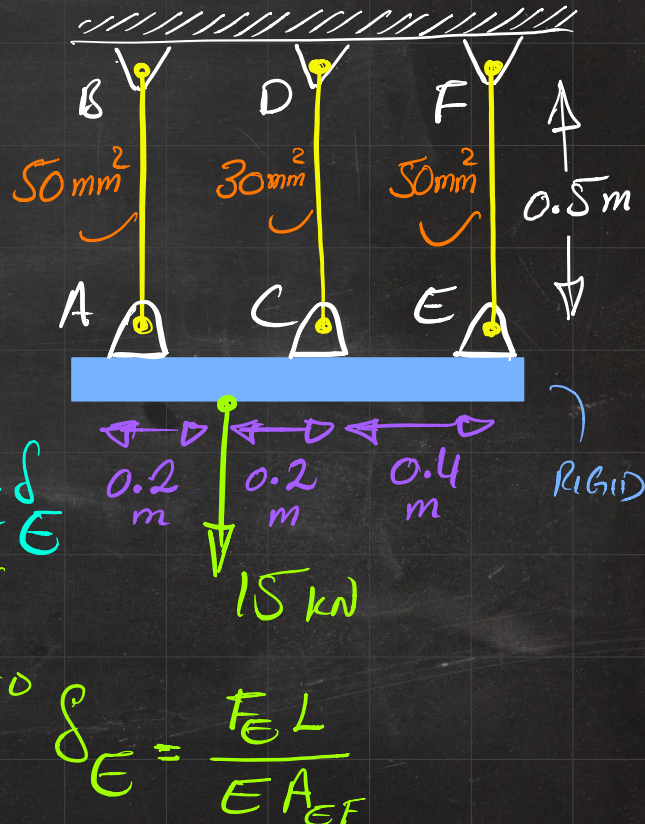 B D F
50mm² 30mm² 50mm²
0.5m
A C E
0.2 m 0.2 m 0.4 m
RIGID
δ
E
15 kN
δ_E = F_E L / E A_EF